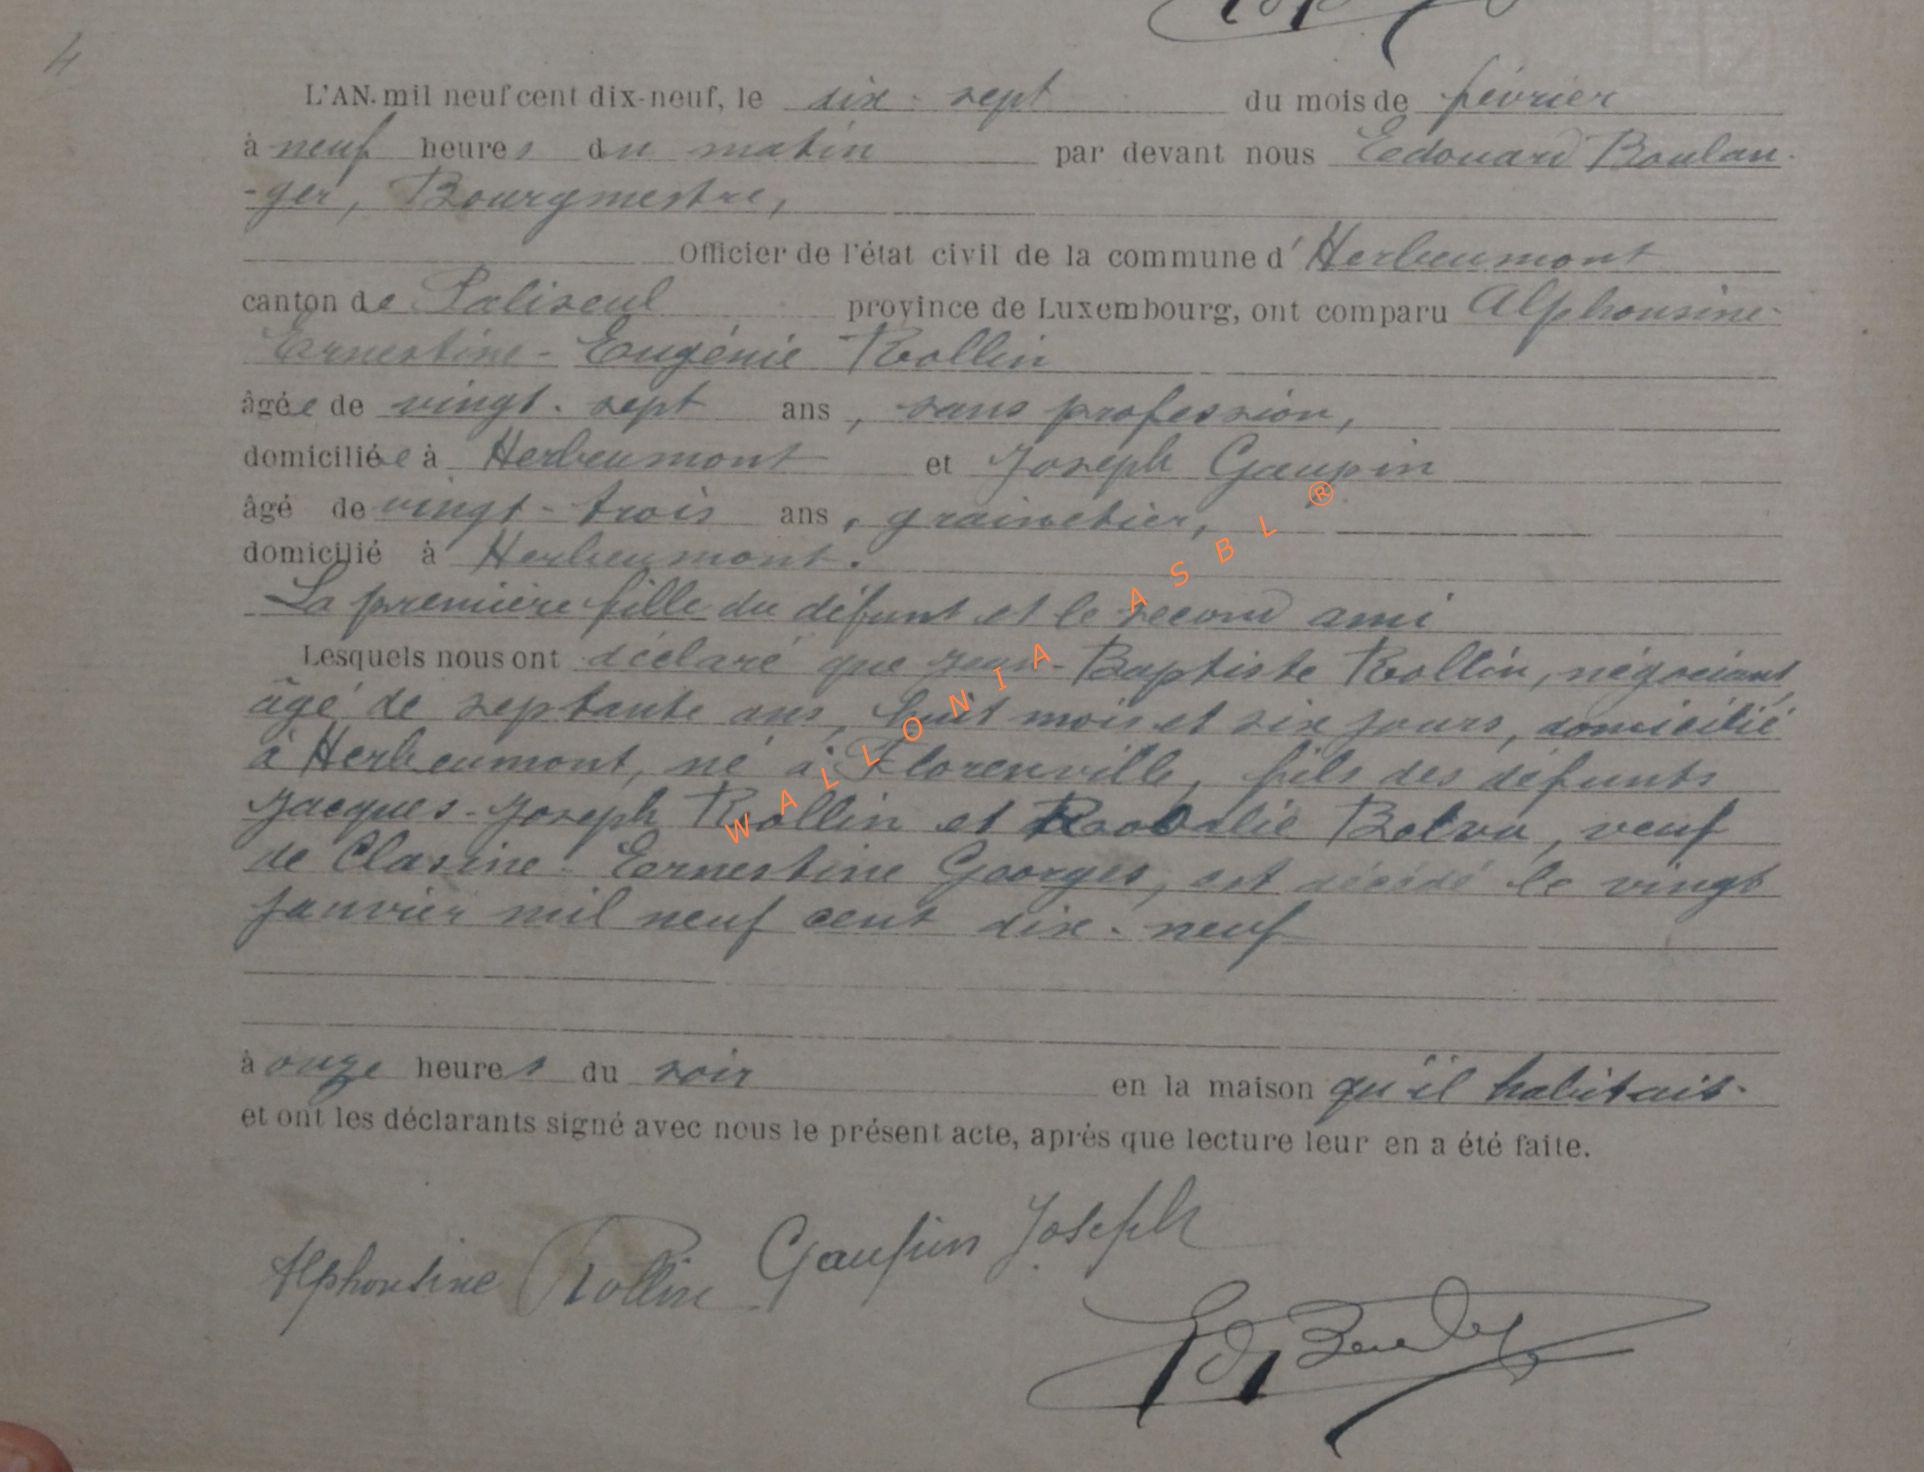 4
L'AN mil neuf cent dix-neuf, le dix-sept du mois de février
à neuf heures du matin par devant nous Edouard Boulan-
-ger, Bourgmestre,
Officier de l'état civil de la commune d'Herbeumont
canton de Paliseul province de Luxembourg, ont comparu Alphonsine-
Ernestine-Eugénie Rollin
âgée de vingt-sept ans, sans profession,
domiciliée à Herbeumont et Joseph Gaupin
âgé de vingt-trois ans, grainetier,
domicilié à Herbeumont.
La première fille du défunt et le second ami
Lesquels nous ont déclaré que Jean-Baptiste Rollin, négociant,
âgé de septante ans, huit mois et six jours, domicilié
à Herbeumont, né à Florenville, fils des défunts
Jacques-Joseph Rollin et veuf
de Ernestine Georges, est décédé le vingt
janvier mil neuf cent dix-neuf
à onze heures du soir en la maison qu'il habitait.
et ont les déclarants signé avec nous le présent acte, après que lecture leur en a été faite.
Alphonsine Rollin Gaupin Joseph
WALLONIA ASBL ®